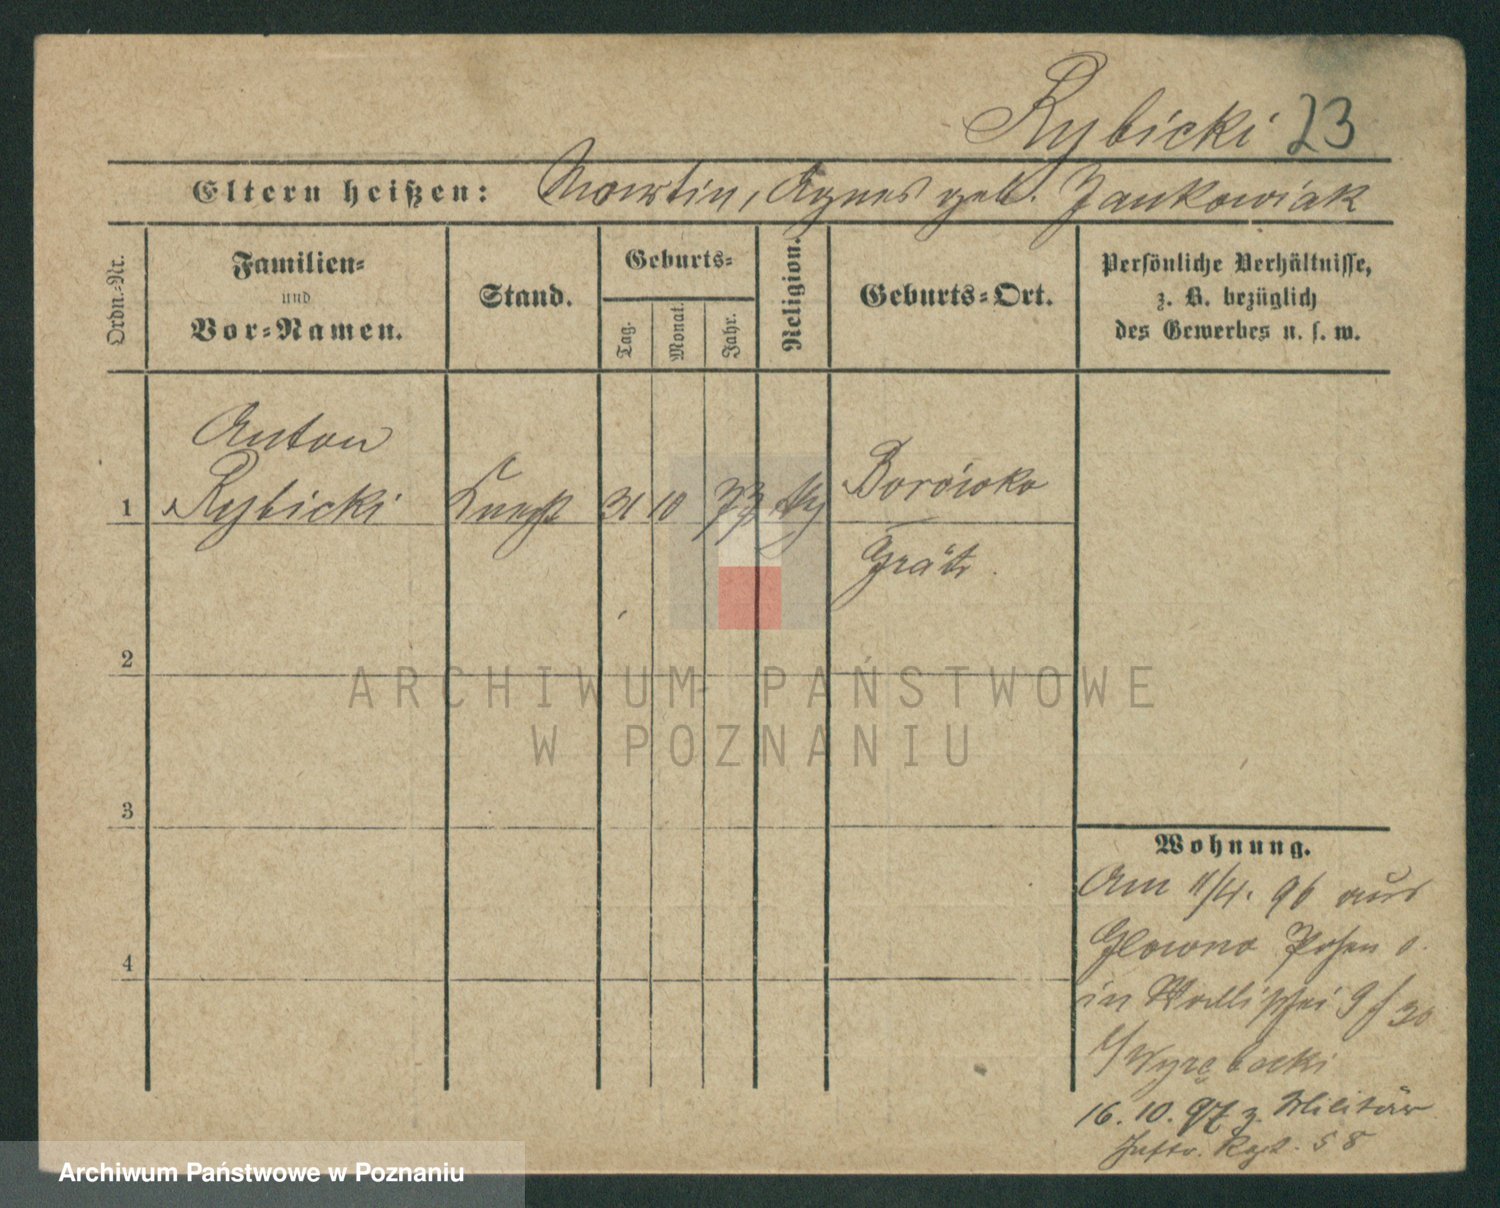 Rybicki 23
Eltern heißen: Martin, Agnes geb. Jankowiak
Ordn.-Nr.
Familien-
und
Vor-Namen.
Stand.
Geburts-
Tag.
Monat.
Jahr.
Religion.
Geburts-Ort.
Persönliche Verhältnisse,
z. B. bezüglich
des Gewerbes u. s. w.
Anton
1 Rybicki Knecht 31 10 73 Borówko
Grätz
2
3
4
Wohnung.
Am 11/4. 96 aus
Glowno Posen O.
in 30
b/Wyrębacki
16. 10. 97 z. Militär
Inftr. Rgt. 58
ARCHIWUM PAŃSTWOWE
W POZNANIU
Archiwum Państwowe w Poznaniu